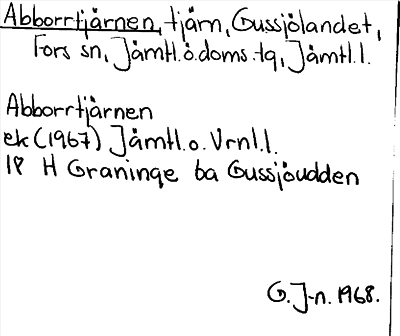 Abborrtjärnen, tjärn, Gussjölandet,
Fors sn, Jämtl.ö.doms.tg, Jämtl.l.
Abborrtjärnen
ek (1967) Jämtl.o. Vrnl.l.
18 H Graninge 6a Gussjöudden
G.J-n. 1968.